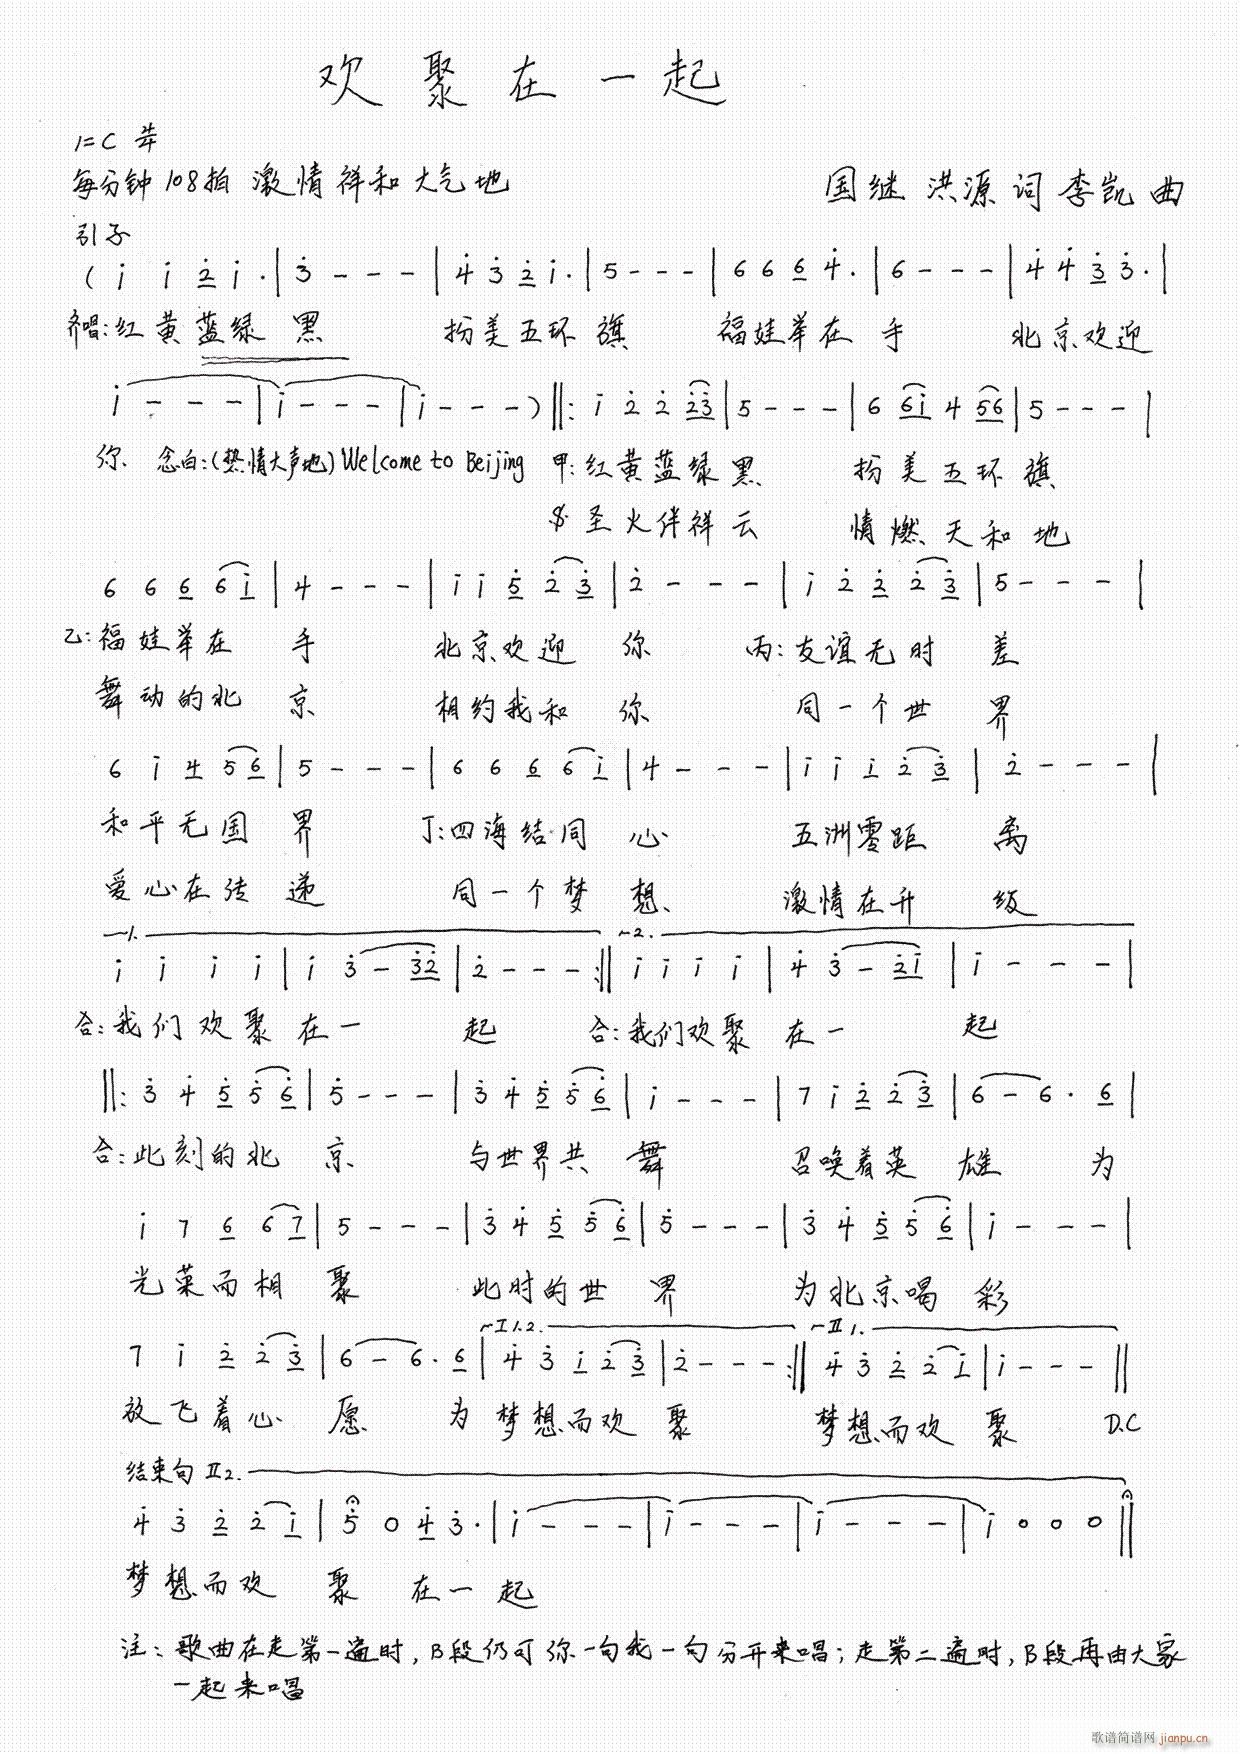 欢聚在一起
1=C 4/4
每分钟108拍 激情祥和大气地
国继 洪源 词 李凯 曲
引子
( i i 2̇ i · | 3̇ - - - | 4̇ 3̇ 2̇ i · | 5 - - - | 6 6 6 4̇ · | 6 - - - | 4̇ 4̇ 3̇ 3̇ · |
齐唱:红黄蓝绿 黑 扮美五环 旗 福娃举在 手 北京欢迎
i - - - | i - - - | i - - - ) ‖: i 2̇ 2̇ 2̇3̇ | 5 - - - | 6 6i 4 56 | 5 - - - |
你 念白:(热情大声地) Welcome to Beijing 甲:红黄蓝绿 黑 扮美五环 旗
𝄋 圣火伴祥云 情燃天和地
6 6 6 6 i | 4 - - - | i i 5̇ 2̇ 3̇ | 2̇ - - - | i 2̇ 2̇ 2̇ 3̇ | 5 - - - |
乙:福娃举在 手 北京欢迎 你 丙:友谊无时 差
舞动的北 京 相约我和 你 同一个世 界
6 i 4̇ 5 6 | 5 - - - | 6 6 6 6 i | 4 - - - | i i i 2̇ 3̇ | 2̇ - - - |
和平无国 界 丁:四海结同 心 五洲零距 离
爱心在传 递 同一个梦 想 激情在升 级
1. 2.
i i i i | i 3̇ - 3̇2̇ | 2̇ - - - :‖ i i i i | 4̇ 3̇ - 2̇i | i - - - |
合:我们欢聚 在一 起 合:我们欢聚 在一 起
‖: 3̇ 4̇ 5̇ 5̇ 6̇ | 5̇ - - - | 3̇ 4̇ 5̇ 5̇ 6̇ | i - - - | 7 i 2̇ 2̇ 3̇ | 6 - 6 · 6̇ |
合:此刻的北 京 与世界共 舞 召唤着英 雄 为
i 7 6 6 7 | 5 - - - | 3̇ 4̇ 5̇ 5̇ 6̇ | 5̇ - - - | 3̇ 4̇ 5̇ 5̇ 6̇ | i - - - |
光荣而相 聚 此时的世 界 为北京喝 彩
Ⅰ1.2. Ⅱ1.
7 i 2̇ 2̇ 3̇ | 6 - 6 · 6 | 4̇ 3̇ i 2̇ 3̇ | 2̇ - - - :‖ 4̇ 3̇ 2̇ 2̇ i | i - - - ‖
放飞着心 愿 为 梦想而欢 聚 梦想而欢 聚 D.C
结束句 Ⅱ2.
4̇ 3̇ 2̇ 2̇ i | 5̇ 0 4̇ 3̇ · | i - - - | i - - - | i - - - | i 0 0 0 ‖
梦想而欢 聚 在一 起
注:歌曲在走第一遍时,B段仍可你一句我一句分开来唱;走第二遍时,B段再由大家
一起来唱
歌谱简谱网 jianpu.cn